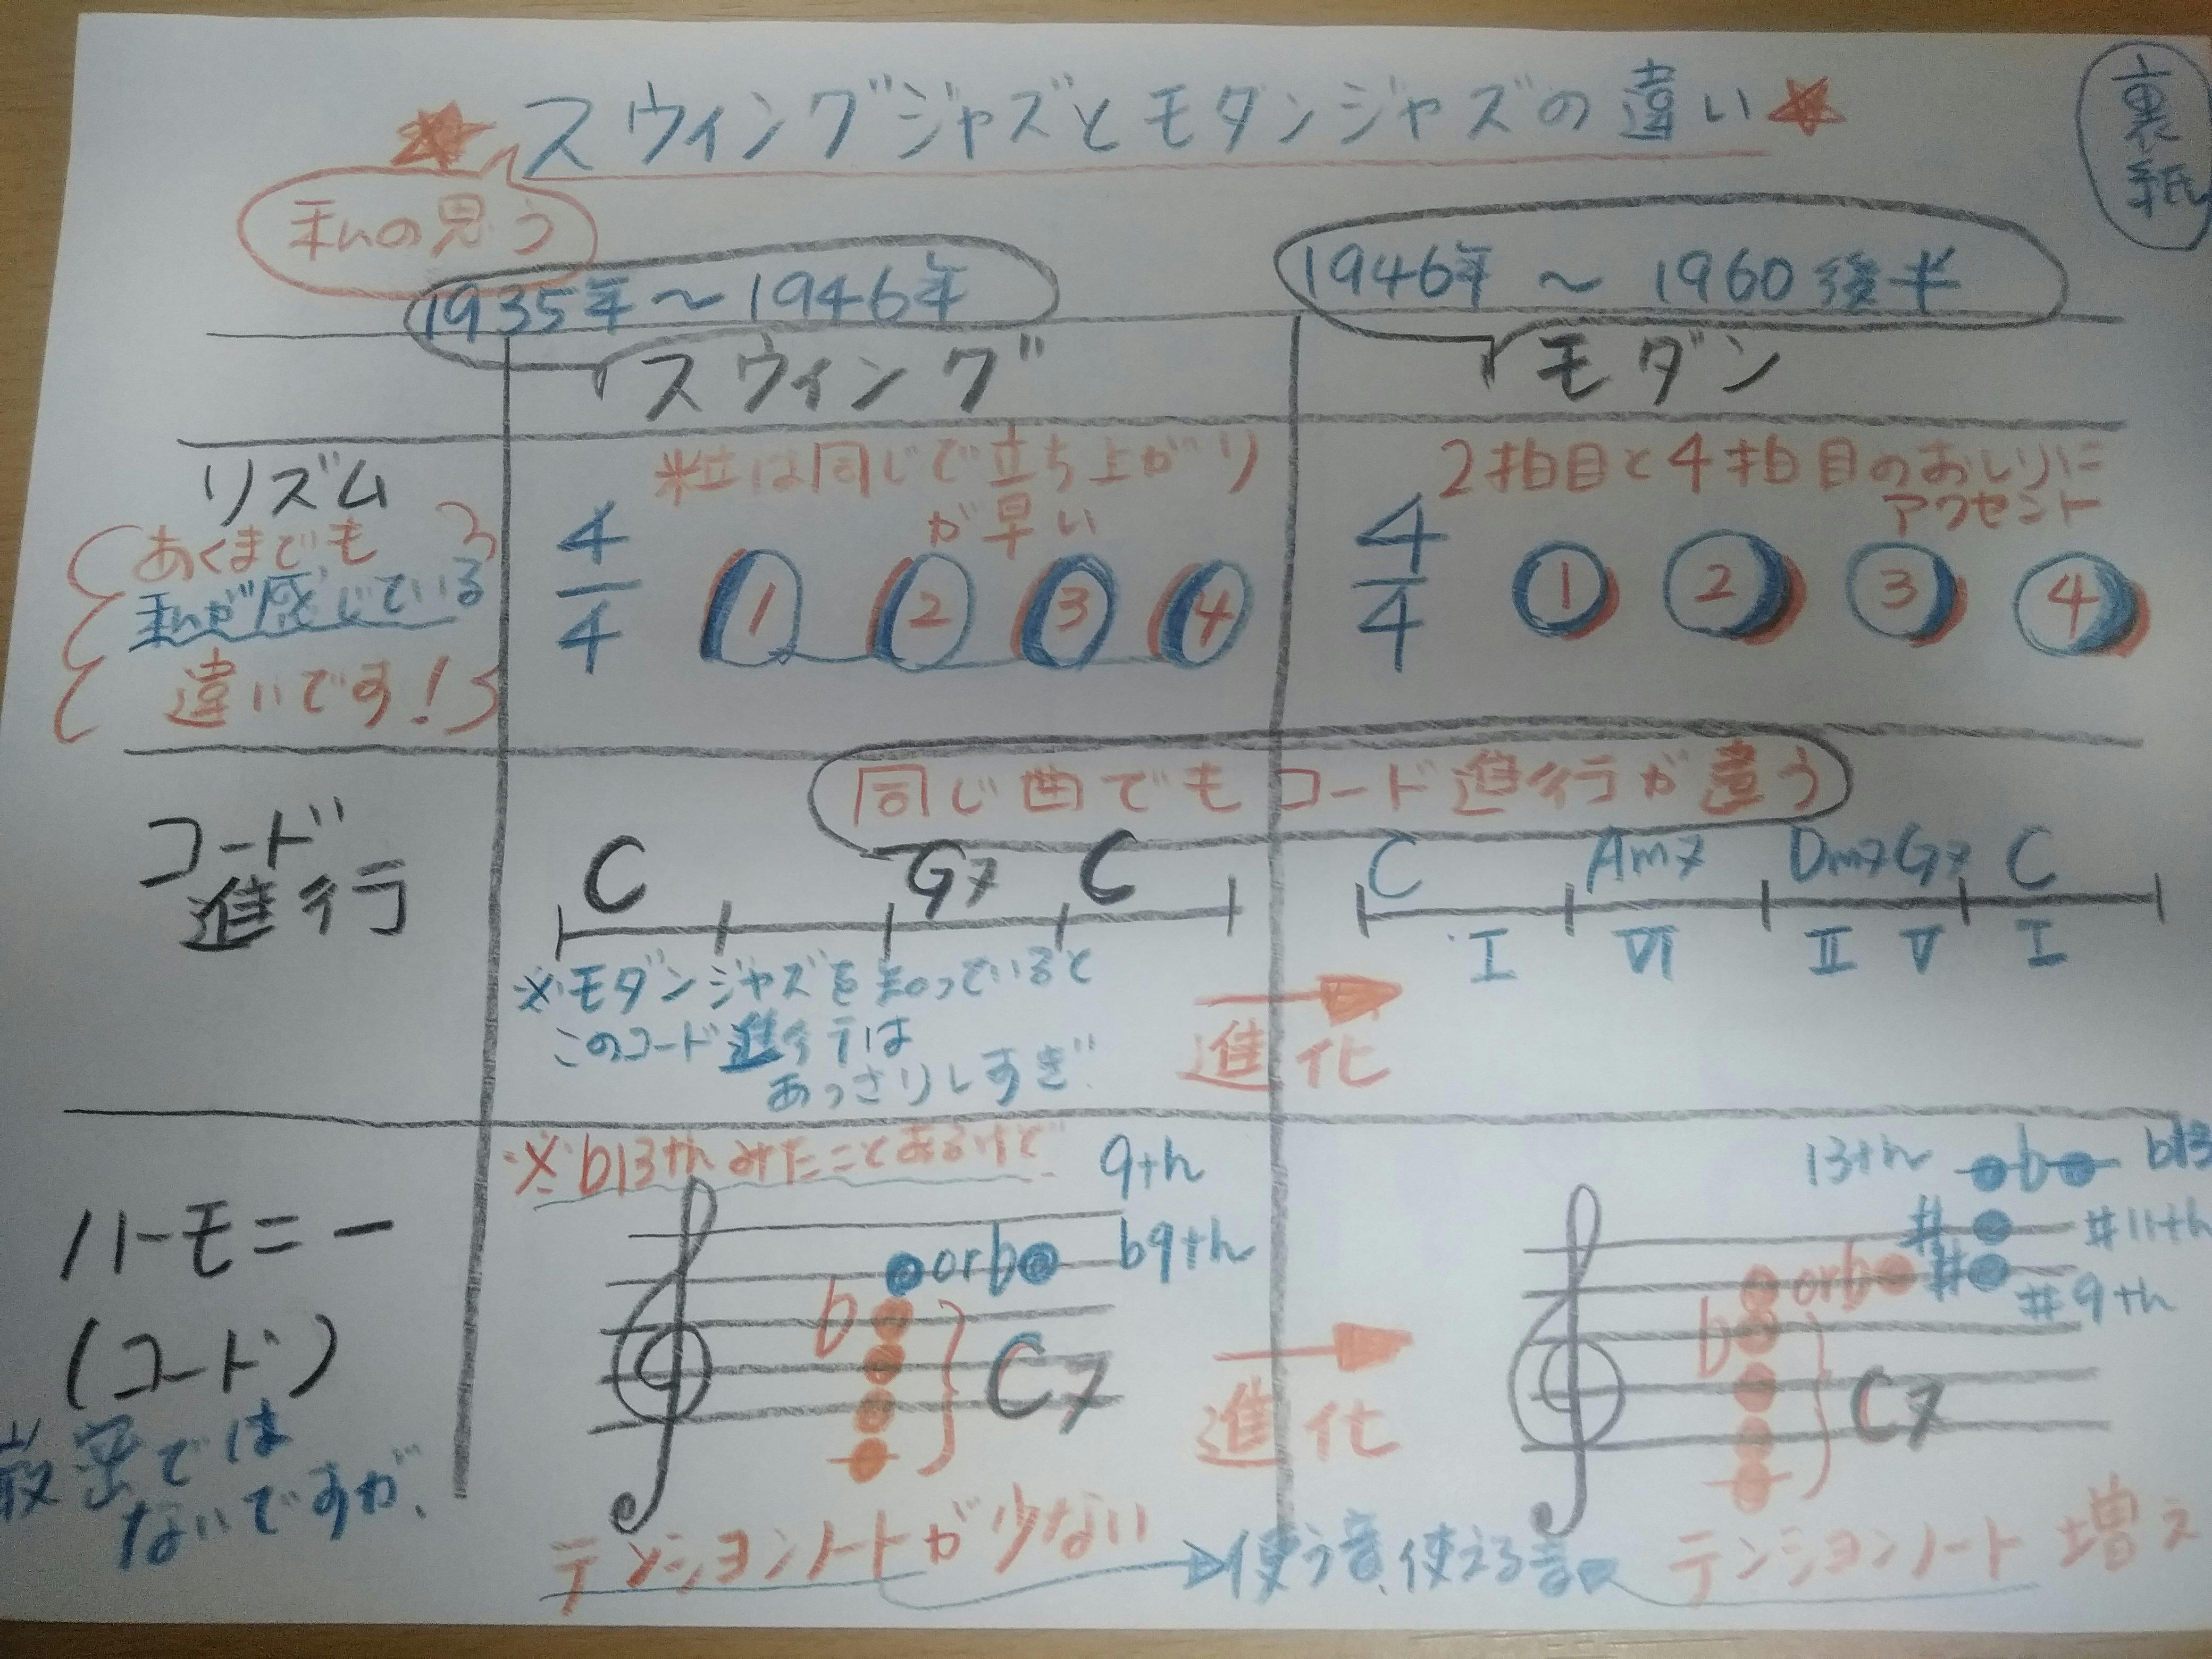 ★スウィングジャズとモダンジャズの違い★
裏紙
私の思う
1935年～1946年
1946年 ～ 1960後半
スウィング
モダン
リズム
あくまでも
私が感じている
違いです!
粒は同じで立ち上がり
が早い
4/4 1 2 3 4
2拍目と4拍目のおしりに
アクセント
4/4 1 2 3 4
コード
進行
同じ曲でもコード進行が違う
C G7 C
※モダンジャズを知っていると
このコード進行は
あっさりしすぎ
進化
C Am7 Dm7 G7 C
I VI II V I
ハーモニー
(コード)
厳密では
ないですが、
※b13thみたことあるけど
9th
or b b9th
b C7
テンションノートが少ない
進化
使う音、使える音
13th b b13
# #11th
or b # #9th
b C7
テンションノート 増え